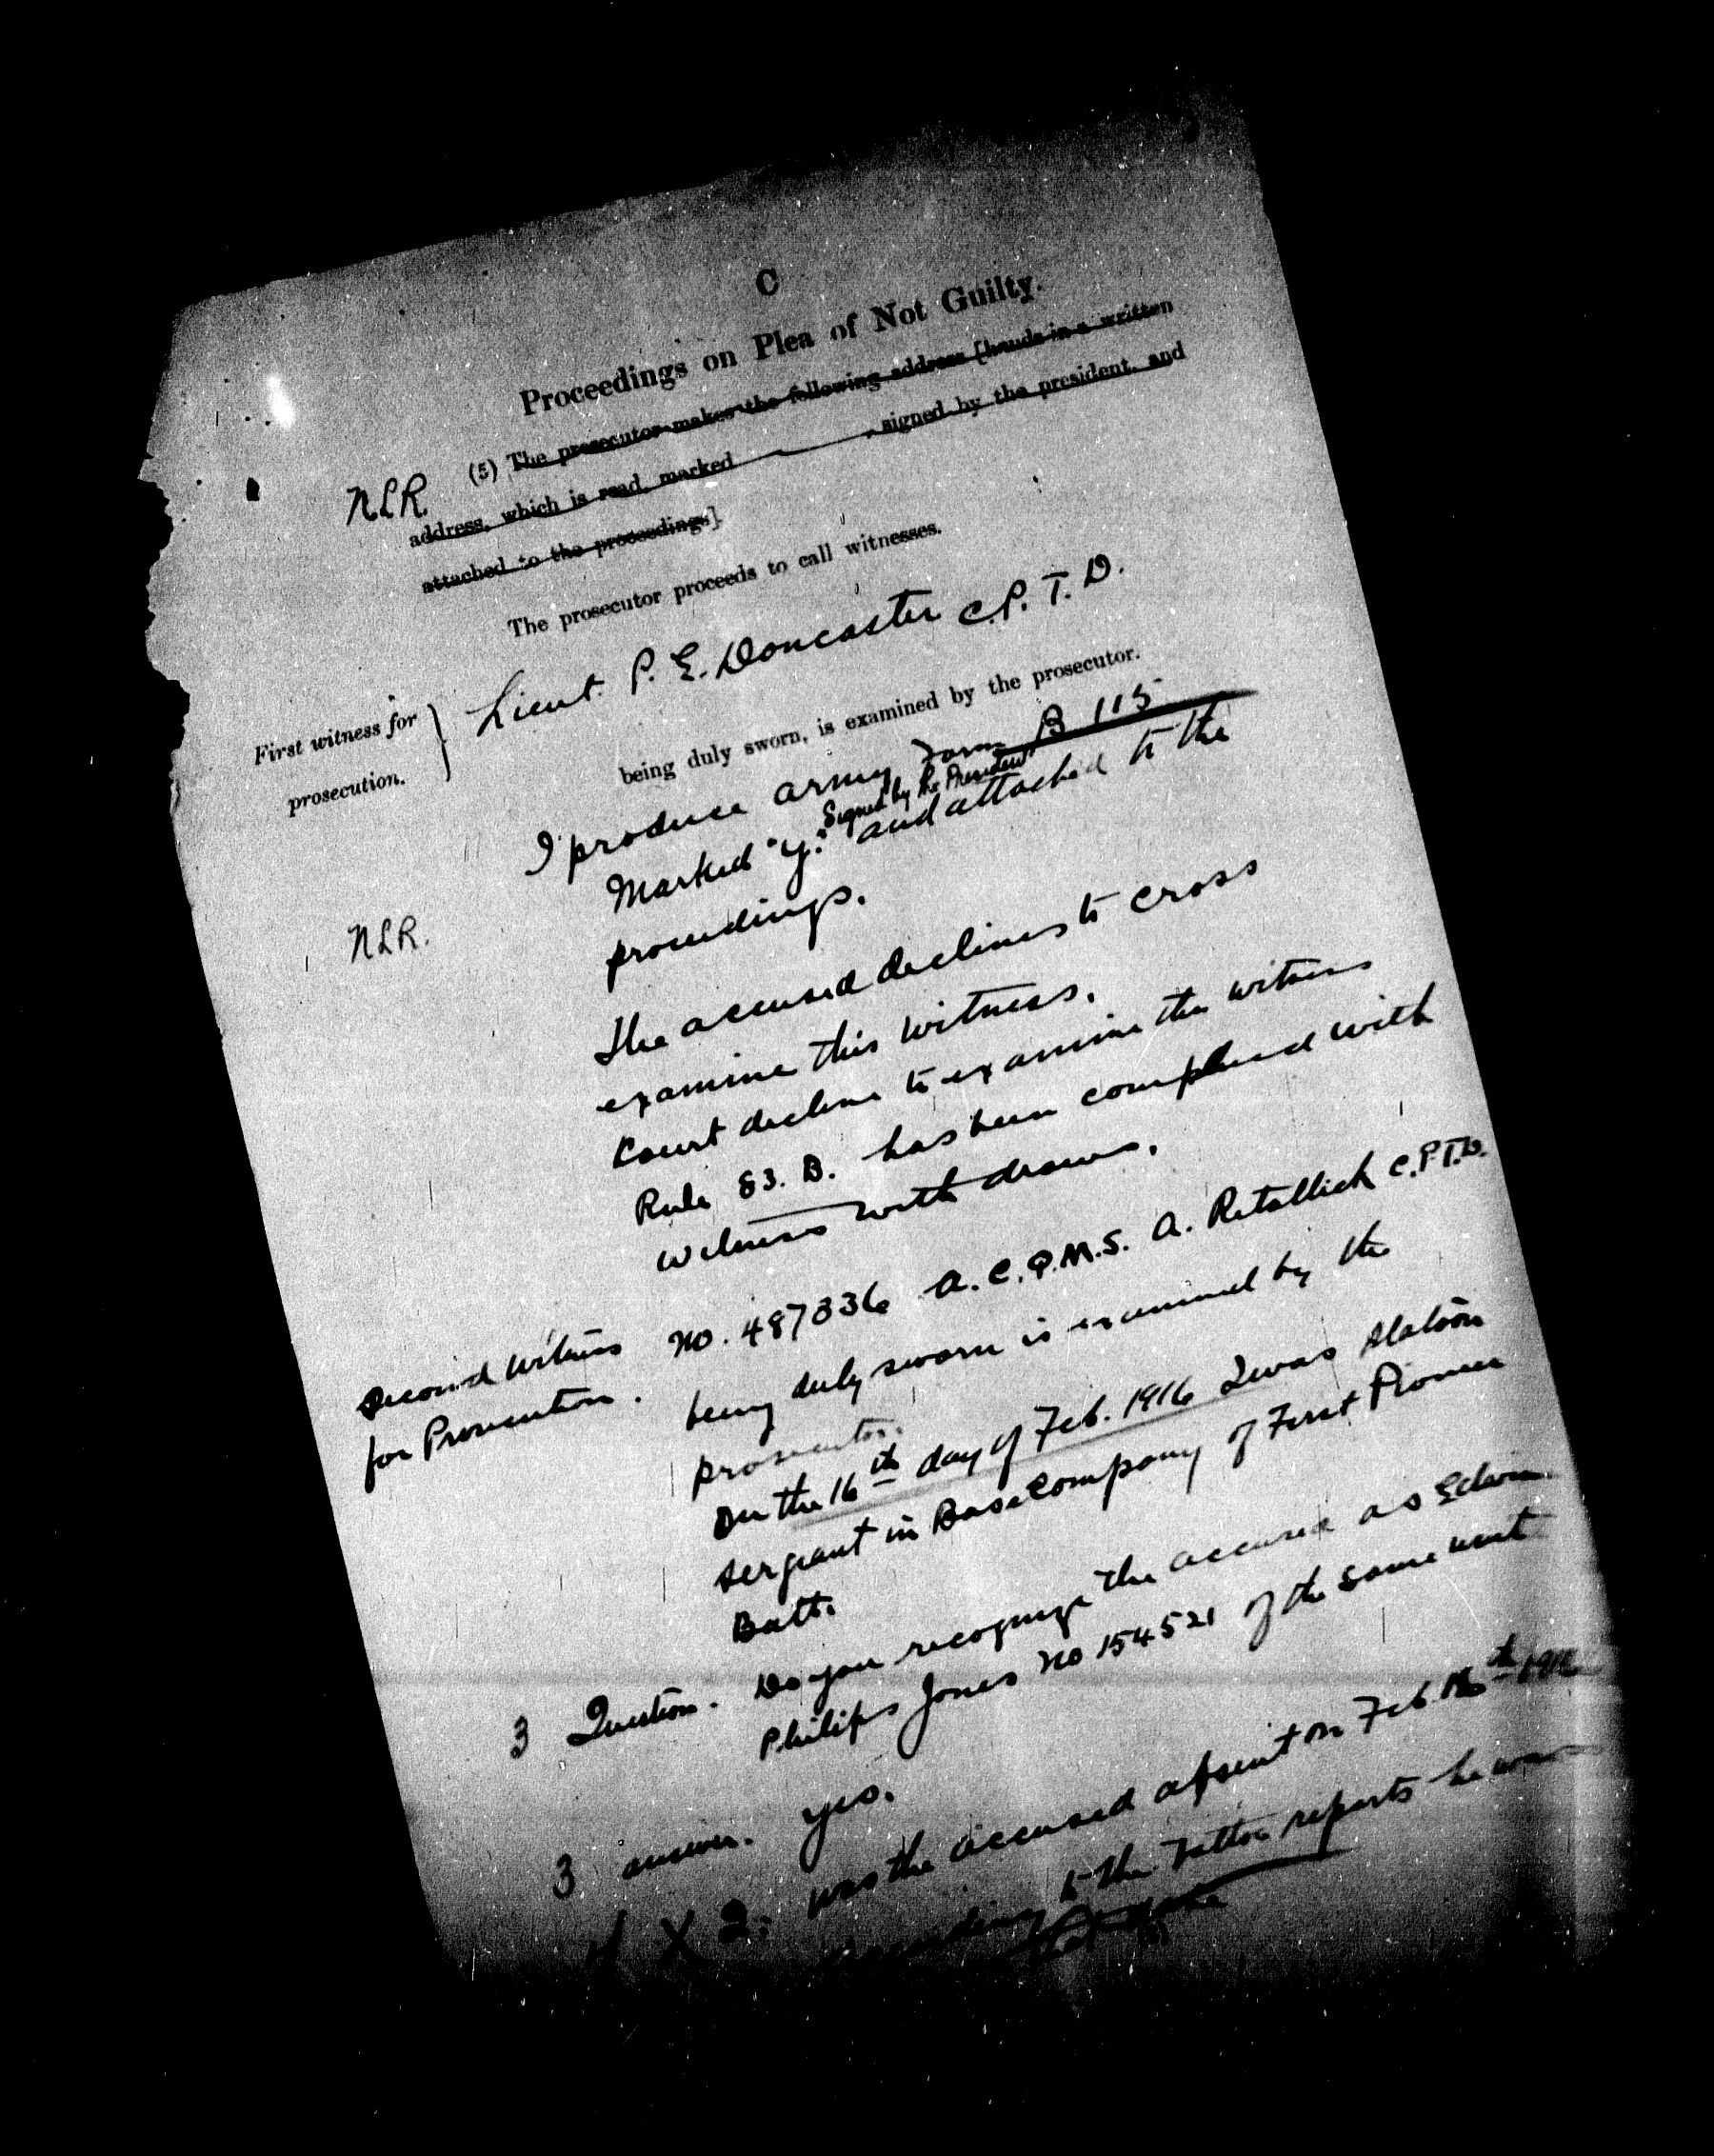 C
Proceedings on Plea of Not Guilty.
N.L.R. (5) The prosecutor makes the following address [hands in a written
address, which is read, marked , signed by the president, and
attached to the proceedings].
The prosecutor proceeds to call witnesses.
First witness for
prosecution.
Lieut. P. E. Doncaster C.P.T.D.
being duly sworn, is examined by the prosecutor.
I produce army Form B 115
Signed by the President
Marked "Y." and attached to the
proceedings.
N.L.R.
The accused declines to cross
examine this witness.
Court decline to examine the witness
Rule 83. B. has been complied with
witness with draws.
Second Witness No. 487336 A.C.Q.M.S. A. Retallick C.P.T.D.
for Prosecution. being duly sworn is examined by the
prosecutor.
On the 16th day of Feb. 1916 I was Platoon
sergeant in Base Company of First Pioneer
Batt.
3 Question. Do you recognize the accused as Edwin
Philips Jones No 154521 of the same unit
3 answer. Yes.
X Q: was the accused absent on Feb. 16th 1916
to the Tattoo reports he was